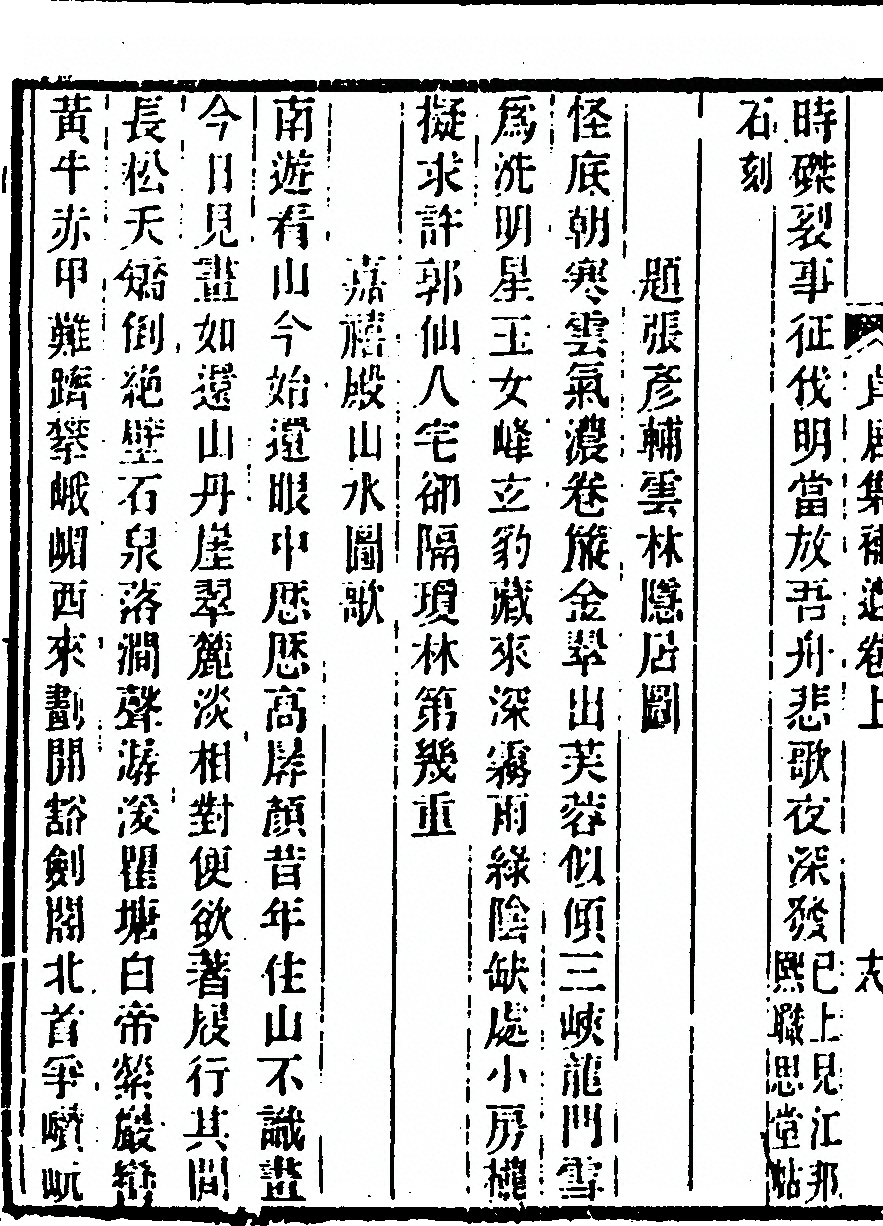 貞居集補遺卷上　十八
時磔裂事征伐明當放吾舟悲歌夜深發已上見江邨
熙職思堂帖
石刻
題張彥輔雲林隱居圖
怪底朝寒雲氣濃卷金翠出芙蓉似傾三峽龍門雪
爲洗明星玉女峰玄豹藏來深霧雨綠陰缺處小房櫳
擬求許郭仙人宅卻隔瓊林第幾重
嘉禧殿山水圖歌
南遊看山今始還眼中厯厯高孱顏昔年住山不識畫
今日見畫如還山丹崖翠麓淡相對便欲著屐行其間
長松夭矯倒絶壁石泉落澗聲潺湲瞿塘白帝縈巖巒
黃牛赤甲難躋攀峨嵋西來劃開豁劍閣北首爭巑岏